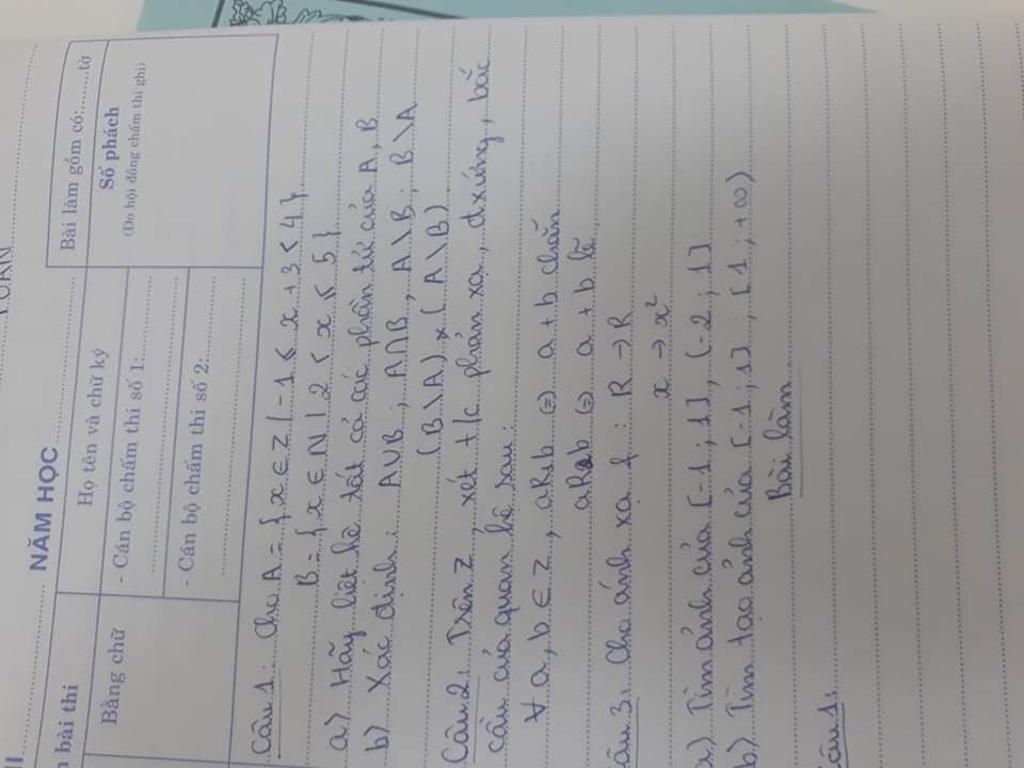 NĂM HỌC
bài thi
Họ tên và chữ ký
Bài làm gồm có:........tờ
Bằng chữ
- Cán bộ chấm thi số 1:
Số phách
(Do hội đồng chấm thi ghi)
- Cán bộ chấm thi số 2:
Câu 1: Cho A = {x ∈ Z | -1 ≤ x + 3 < 4}.
B = {x ∈ N | 2 < x ≤ 5}
a) Hãy liệt kê tất cả các phần tử của A, B
b) Xác định: A∪B ; A∩B, A\B ; B\A
(B\A) × (A\B)
Câu 2: Trên Z, xét t/c phản xạ, đxứng, bắc
cầu của quan hệ sau:
∀ a, b ∈ Z, aR₁b ⇔ a + b chẵn
aR₂b ⇔ a + b lẻ
Câu 3: Cho ánh xạ f: R → R
x → x²
a) Tìm ảnh của [-1; 1], (-2; 1]
b) Tìm tạo ảnh của [-1; 1] ; [1; +∞)
Bài làm
Câu 1: